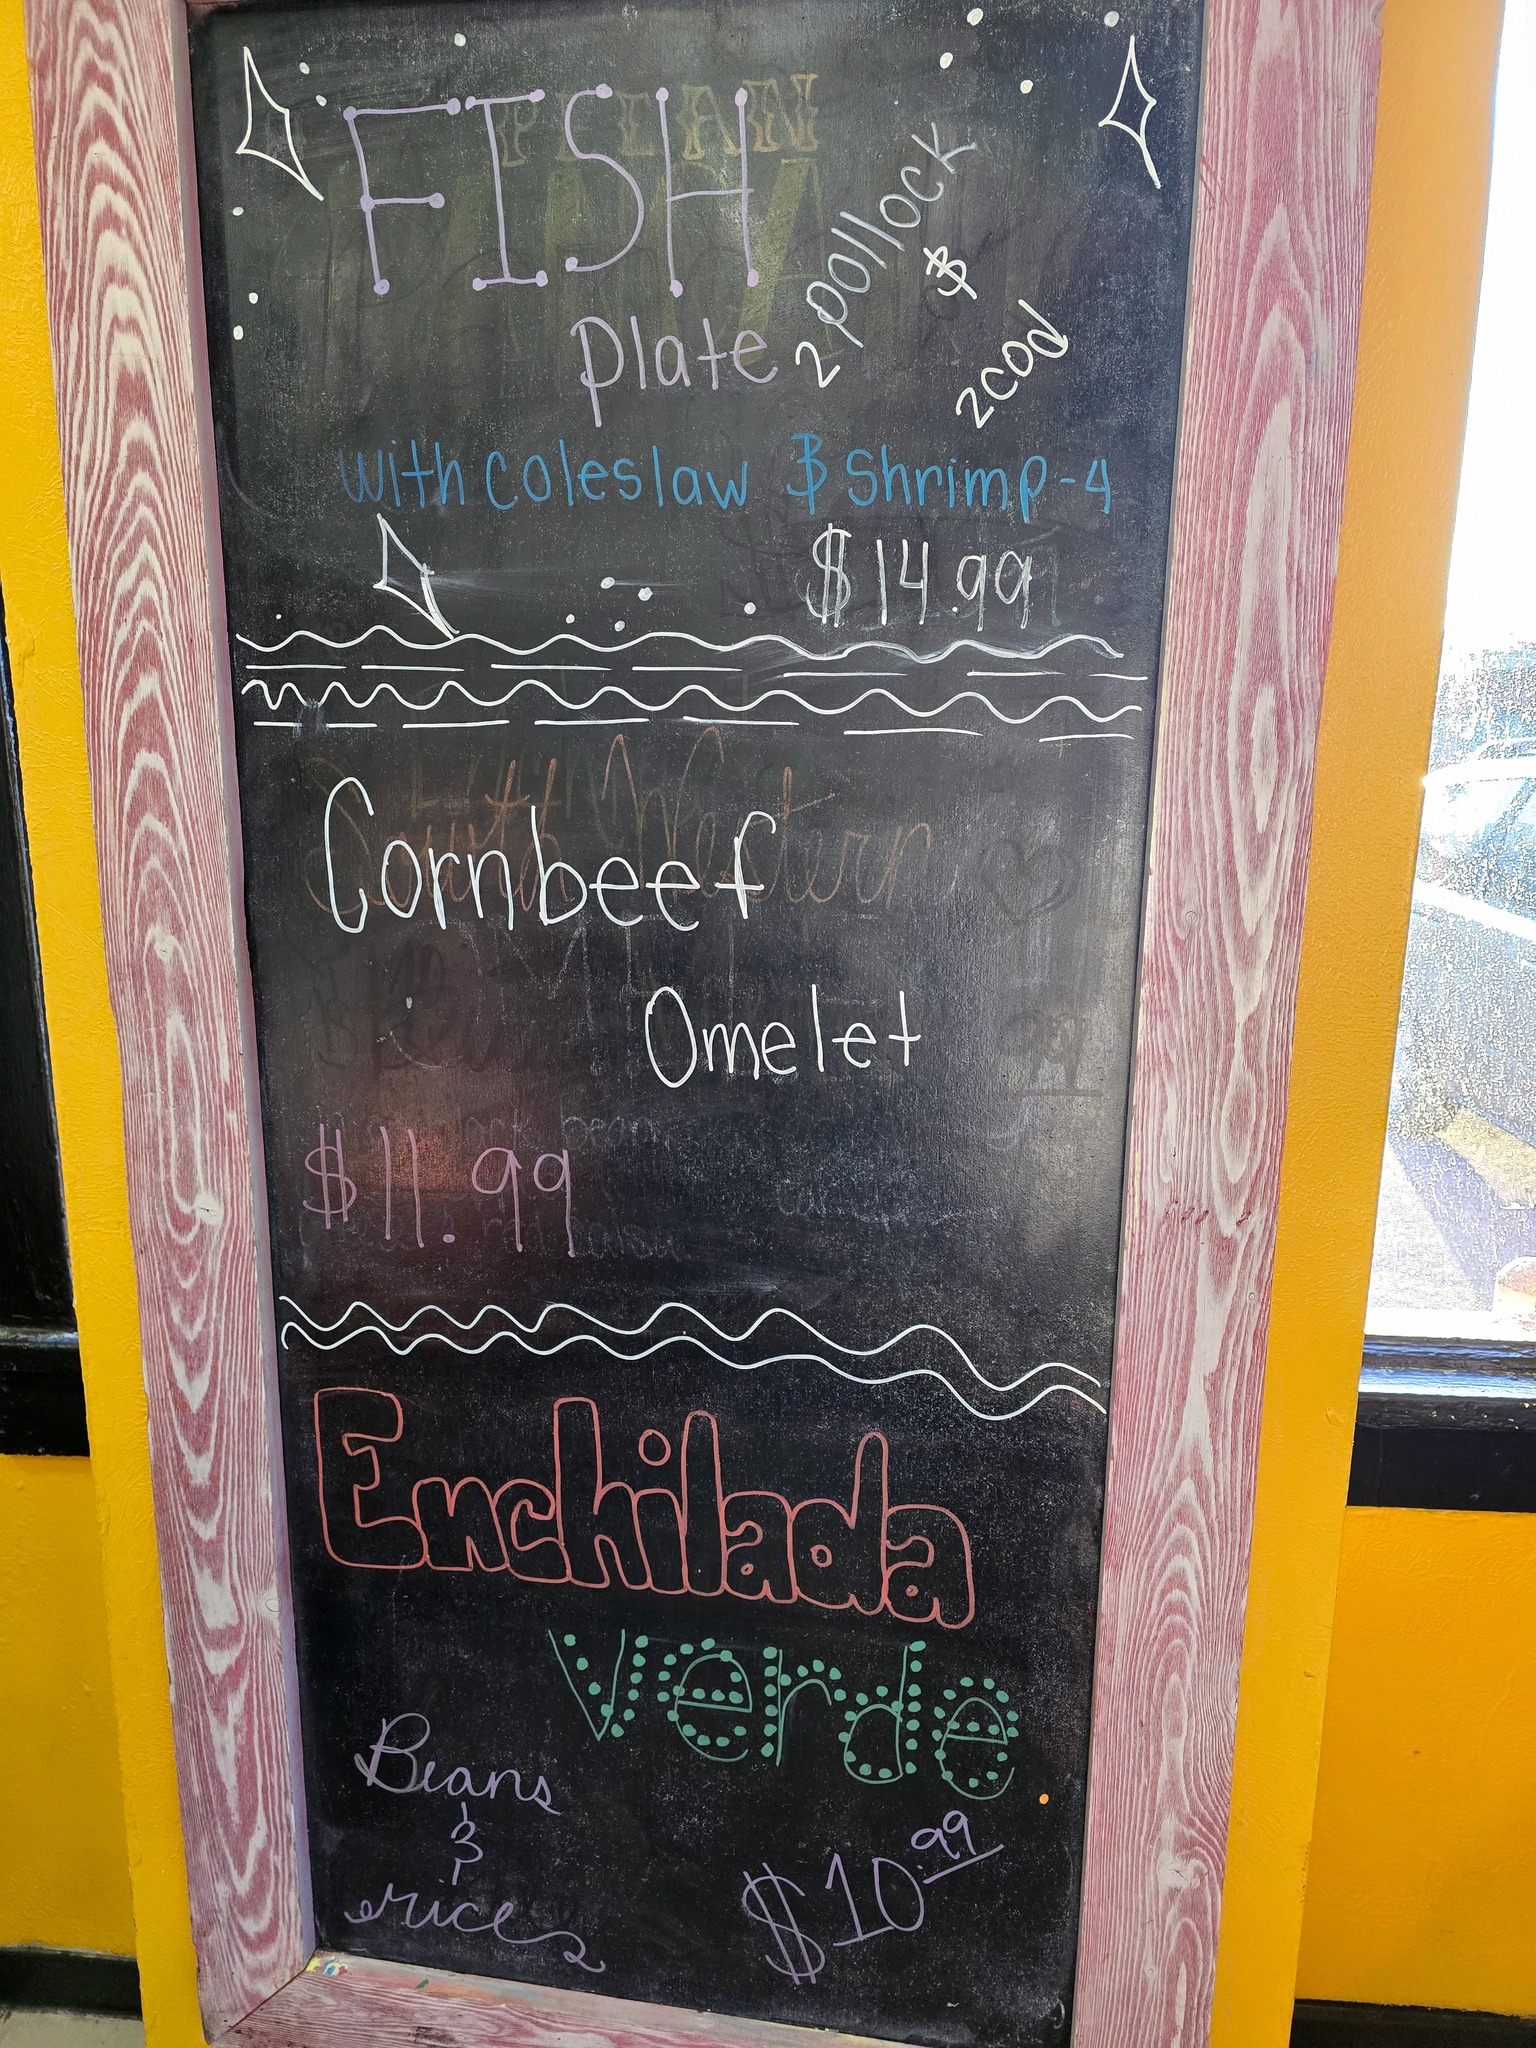 FISH
plate
2 pollock
&
2 cod
with coleslaw & shrimp-4
$14.99
Cornbeef
Omelet
$11.99
Enchilada
verde
Beans
&
rice
$10.99